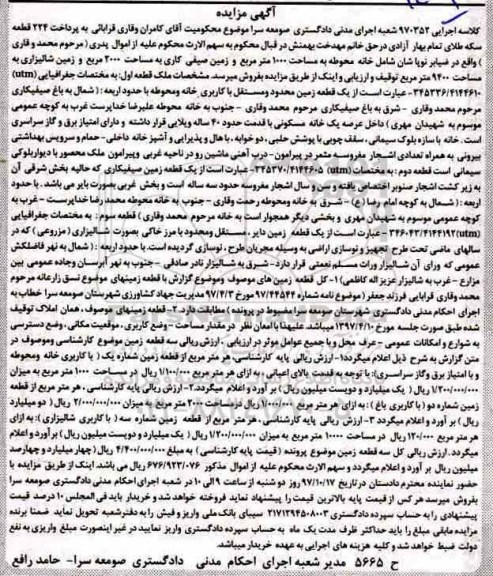 آگهی مزایده
کلاسه اجرایی ۹۷۰۳۵۲ شعبه اجرای مدنی دادگستری صومعه سرا موضوع محکومیت آقای کامران وقاری قرابائی به پرداخت ۲۲۴ قطعه
سکه طلای تمام بهار آزادی در حق خانم مهدخت بهمنش در قبال محکوم به سهم الارث محکوم علیه از اموال پدری ( مرحوم محمد وقاری
) واقع در ضیابر نوپا شان شامل خانه محوطه به مساحت ۱۰۰۰ متر مربع و زمین صیفی کاری به مساحت ۲۰۰۰ مربع و زمین شالیزاری به
مساحت ۹۴۰۰ متر مربع توقیف و ارزیابی و اینک از طریق مزایده بفروش میرسد. مشخصات ملک قطعه اول: به مختصات جغرافیایی (utm)
۳۴۵۳۳۶/۴۱۴۴۶۱۰- عبارت است از یک قطعه زمین محدود و مستقل با کاربری خانه و محوطه با حدود اربعه : ( شمال به باغ صیفیکاری
مرحوم محمد وقاری - شرق به باغ صیفیکاری مرحوم محمد وقاری - جنوب به خانه محوطه علیرضا خداپرست غرب به کوچه عمومی
موسوم به شهیدان مهری ) داخل عرصه یک خانه مسکونی با قدمت حدود ۴۰ ساله ویلایی قرار داشته و دارای امتیاز برق و گاز سراسری
است . خانه با سازه بلوک سیمانی ، سقف چوبی با پوشش حلبی ، دو خوابه ، با هال و پذیرایی و آشپز خانه داخلی -حمام و سرویس بهداشتی
بیرونی به همراه تعدادی اشجار مغروسه مثمر در پیرامون- درب آهنی ماشین رو در ناحیه غربی و پیرامون ملک محصور با دیوار بلوکی
سیمانی است قطعه دوم : به مختصات (utm) ۳۴۵۳۷۰/۴۱۴۴۶۰۵- عبارت است از یک قطعه زمین صیفیکاری که حالیه بخش شرقی آن
به زیر کشت اشجار صنوبر اختصاص یافته و سن و سال اشجار مغروسه حدود سه ساله است و بخش غربی بصورت بایر می باشد . با حدود
اربعه : ( شمال به کوچه امام رضا (ع) - شرق به خانه و محوطه رحمت وقاری - جنوب به خانه محوطه محمد رضا خداپرست - غرب به
کوچه عمومی موسوم به شهیدان مهری و بخشی دیگر همجوار است به خانه مرحوم محمد وقاری ) قطعه سوم : به مختصات جغرافیایی
(utm)۳۴۶۰۴۳/۴۱۴۴۱۹۲ - عبارت است از یک قطعه زمین دایر ، مستقل و محدود با مرز خاکی بصورت شالیزاری ( مزروعی ) که در
سالهای ماضی تحت طرح تجهیز و نوسازی اراضی به وسیله مجریان طرح ، نوسازی گردیده است. با حدود اربعه : ( شمال به نهر فاضلکش
عمومی که ورای آن شالیزار وراث مسلم نعمتی قرار دارد- شرق به شالیزار نادر صادقی - جنوب به نهر آبرسان و جاده عمومی بین
مزارع - غرب به شالیزار عزیز اله کاظمی ) ۱- کل قطعه زمین های موصوف و موضوع گزارش با قطعه زمینهای موضوع نسق زارعانه مرحوم
محمد وقاری قرابایی فرزند جعفر ( موضوع نامه شماره ۹۷/۴۴۵۴۴ مورخ ۹۷/۴/۳ مدیریت جهاد کشاورزی شهرستان صومعه سرا خطاب به
اجرای احکام مدنی دادگستری شهرستان صومعه سرا مضبوط در پرونده ) مطابقت دارد. ۲- قطعه زمینهای موصوف ، همان املاک توقیف
شده طبق صورت جلسه مورخ ۱۳۹۷/۴/۱۰ میباشد. علیهذا با امعان نظر در مقدار مساحت - وضع کاربری ، موقعیت مکانی ، وضع دسترسی
به شوارع و امکانات عمومی - عرف محل و با جمیع عوامل موثر در ارزیابی ، ارزش ریالی سه قطعه زمین موضوع کارشناسی و موصوف در
متن گزارش به شرح ذیل اعلام میگردد: ۱- ارزش ریالی پایه کارشناسی، هر متر مربع از قطعه زمین شماره یک ( با کاربری خانه و محوطه
و با امتیاز برق و گاز سراسری): با توجه به قدمت بالای اعیانی ، به ازای هر متر مربع ۱/۱۰۰/۰۰۰ ریال در مساحت ۱۰۰۰ متر مربع به میزان
۱/۲۰۰/۰۰۰/۰۰۰ ریال ( یک میلیارد و دویست میلیون ریال ) بر آورد و اعلام میگردد.۲- ارزش ریالی پایه کارشناسی ، هر متر مربع از قطعه
زمین شماره دو ( با کاربری باغ ) : به ازای هر متر مربع ۱/۰۰۰/۰۰۰ ریال در مساحت ۲۰۰۰ متر مربع به میزان ۲/۰۰۰/۰۰۰/۰۰۰ ریال ( دو میلیارد
ریال ) بر آورد و اعلام میگردد ۳- ارزش ریالی پایه کارشناسی ، هر متر مربع از قطعه زمین شماره سه ( با کاربری شالیزاری ): به ازای
هر متر مربع ۱۲۰/۰۰۰ ریال در مساحت ۱۰۰۰۰ متر مربع به میزان ۱/۲۰۰/۰۰۰/۰۰۰ ریال ( یک میلیارد و دویست میلیون ریال ) بر آورد و اعلام
میگردد. ارزش ریالی کل سه قطعه زمین موضوع پرونده ( قیمت پایه کارشناسی ) به مبلغ ۴/۴۰۰/۰۰۰/۰۰۰ ریال ( چهار میلیارد و چهارصد
میلیون ریال بر آورد و اعلام میگردد و سهم الارث محکوم علیه از اموال مذکور ۶۷۶/۹۲۳/۰۷۶ ریال می باشد. اینک از طریق مزایده با
حضور نماینده محترم دادستان در تاریخ ۹۷/۱۰/۱۷ روز دو شنبه از ساعت ۹ الی ۱۰ در شعبه اجرای احکام مدنی دادگستری صومعه سرا
بفروش میرسد هر کس از قیمت پایه بالاترین قیمت را پیشنهاد نماید فروخته خواهد شد و خریدار باید فی المجلس ۱۰ درصد قیمت
پیشنهادی را به حساب سپرده دادگستری ۲۱۷۱۲۹۴۵۰۸۰۰۳ سیبای بانک ملی واریز و فیش را به دفتر شعبه تحویل نماید ضمنا برنده
مزایده مابقی مبلغ را باید حداکثر ظرف مدت یک ماه به حساب سپرده دادگستری واریز نمایید در غیر اینصورت مبلغ واریزی به نفع
دولت ضبط خواهد شد و کلیه هزینه های اجرایی به عهده خریدار میباشد.
ح ۵۶۶۵ مدیر شعبه اجرای احکام مدنی دادگستری صومعه سرا- حامد رافع